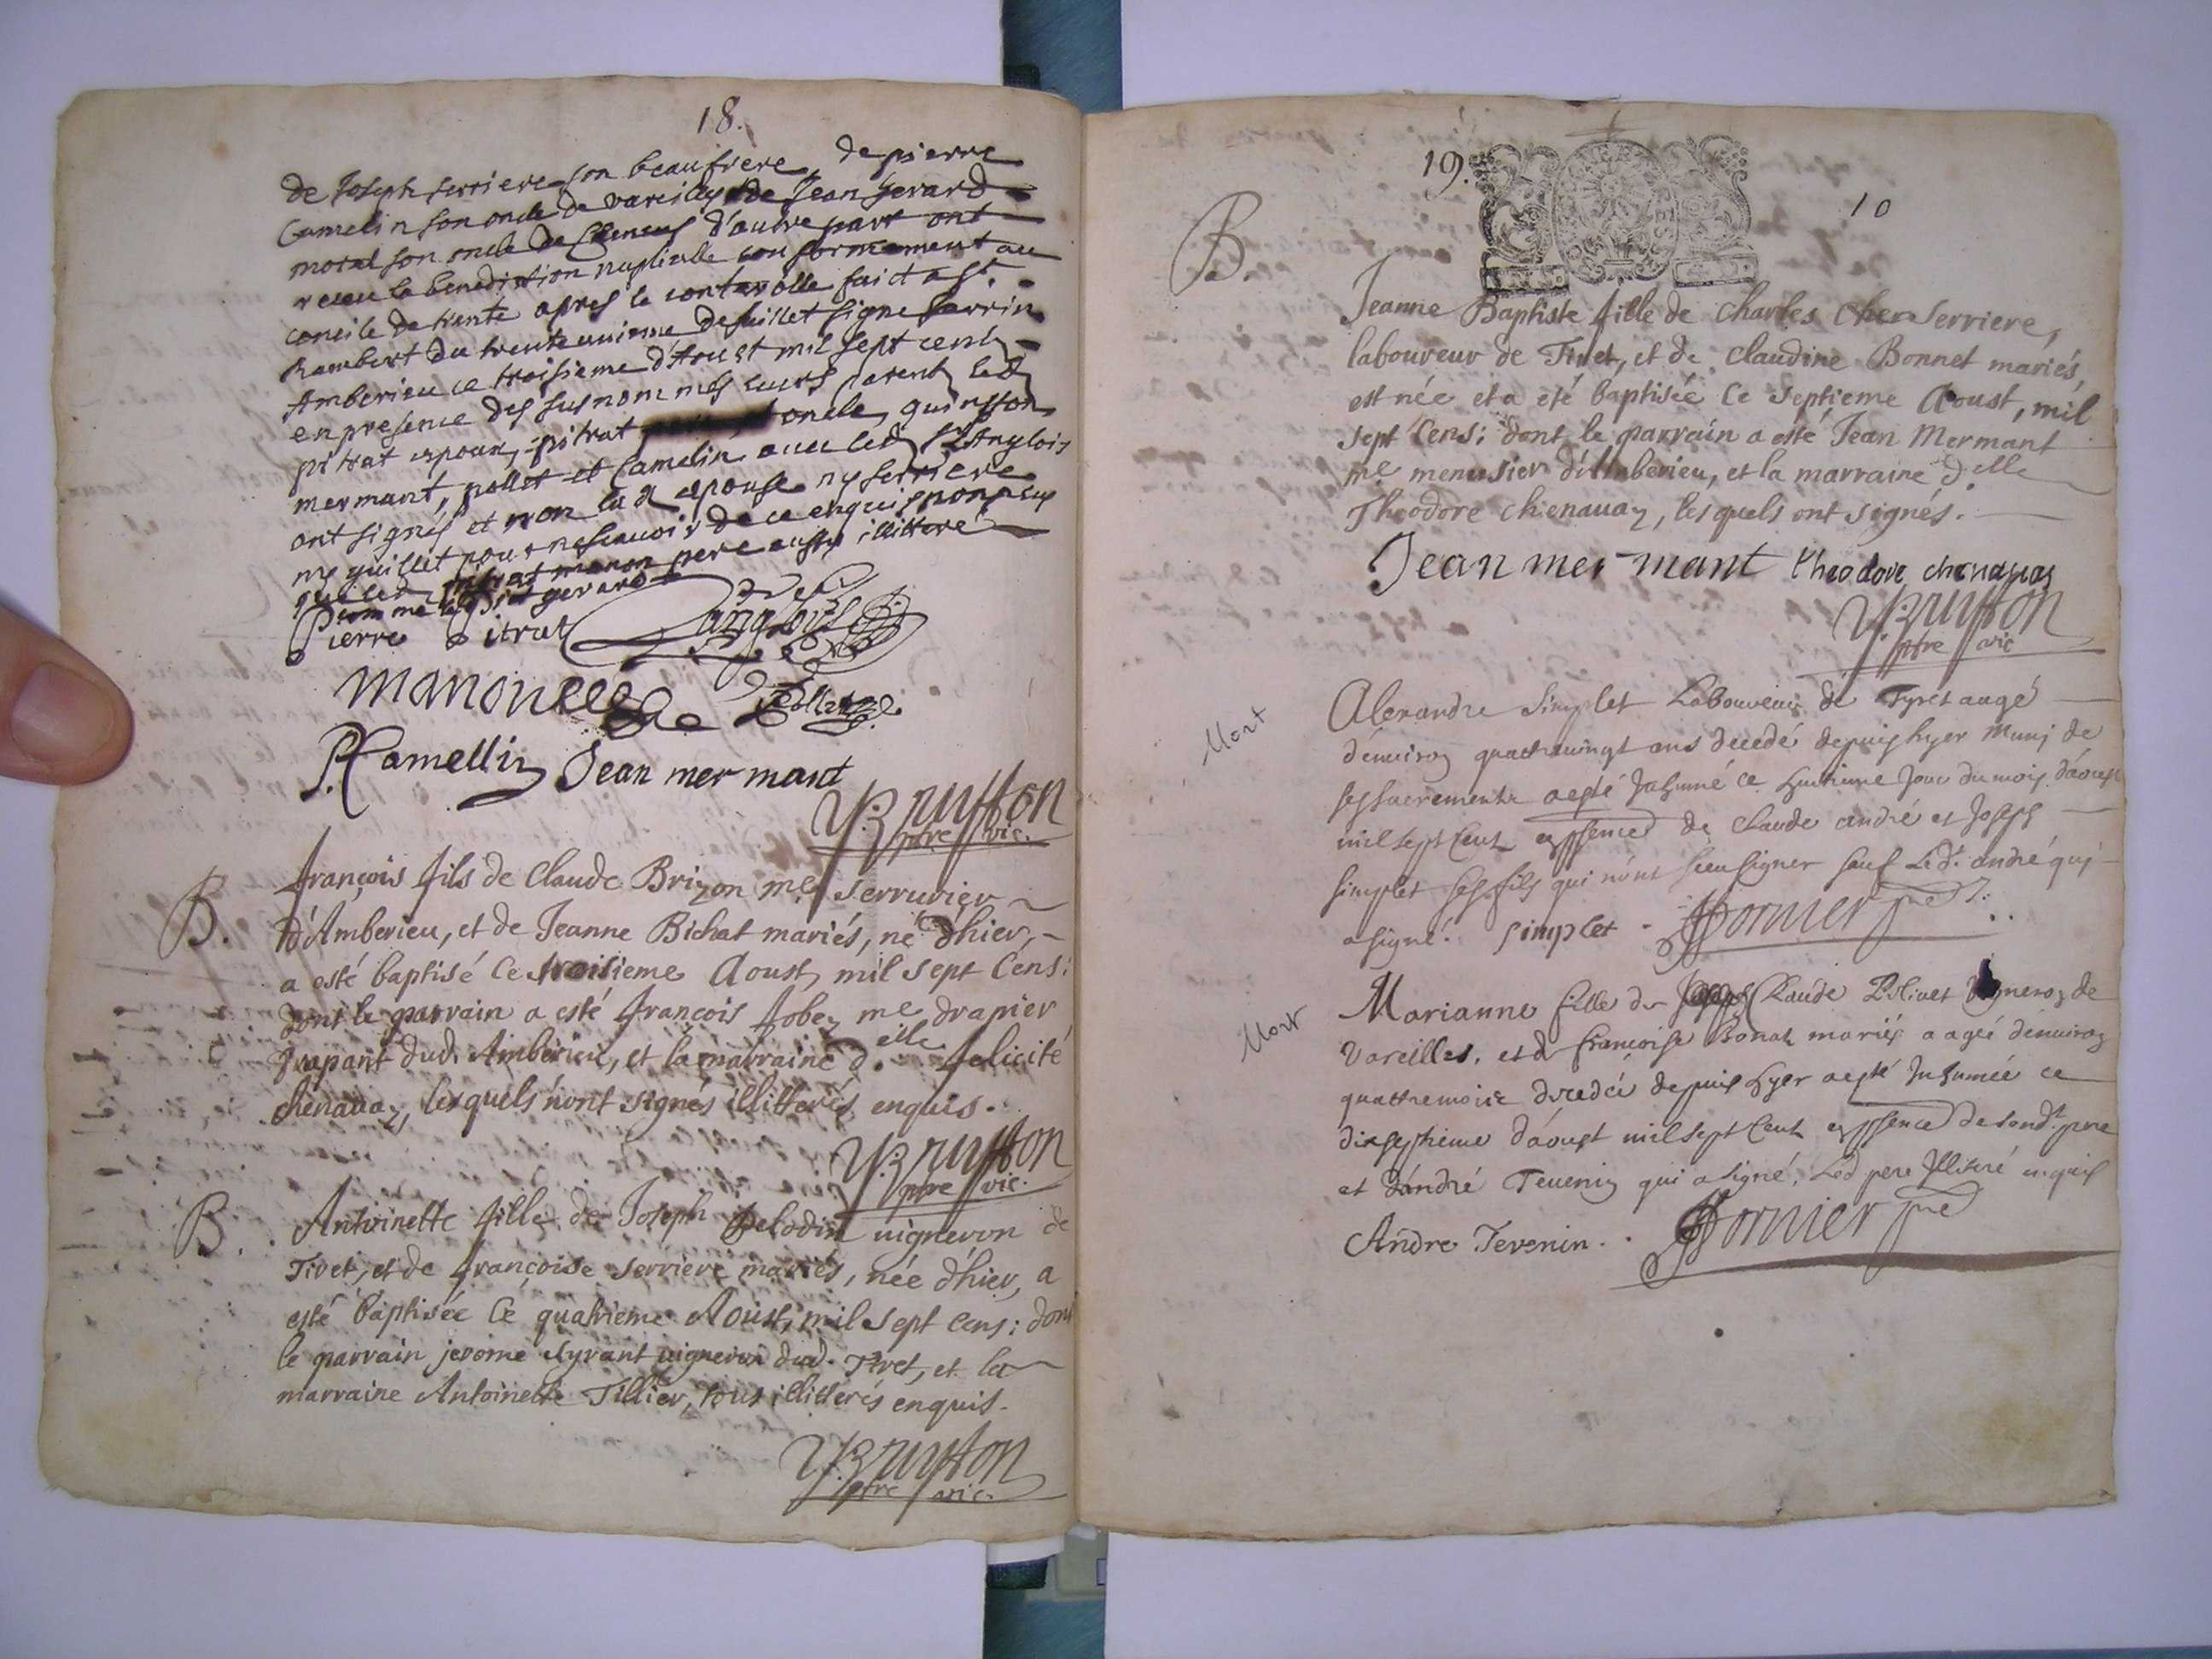 18.
de Joseph serriere son beaufrere, de pierre
Camelin son oncle de vareilles de Jean gerard
morel son oncle de d'autre part ont
receu la benediction nuptialle conformement au
concile de trente apres le contarolle faict a St.
Rambert du trente unieme de Juillet signe perrin
Amberieu ce troisieme d'Aoust mil sept cents
en presence des susnommés leurs parents led
pitrat espoux, pitrat oncle, qui
mermant, pollet et Camelin avec led Sr Anglois
ont signés et non lad espouse ny serriere
ny guillet pour ne scavoir de ce enquis non plus
que led pitrat manon pere aussy illitteré
comme led gerard
Pierre Pitrat Langlois
manon Pollet
P Camellin Jean mer mant
Bruyson
ptre vic.
B.
françois fils de Claude Brizon me serrurier
d'Amberieu, et de Jeanne Bichat mariés, né d'hier,
a esté baptisé le troisieme Aoust, mil sept cens:
dont le parrain a esté françois Jobez me drapier
drapant dud. Amberieu, et la marraine d.elle felicité
chenavaz, lesquels n'ont signés illitterés enquis.
Bruyson
ptre vic.
B.
Antoinette fille de Joseph Belodin vigneron de
Tiret, et de françoise serriere mariés, née d'hier, a
esté baptisée le quatrieme Aoust, mil sept cens: dont
le parrain jerome Syrant vigneron dud. Tiret, et la
marraine Antoinette Tillier, tous illitterés enquis.
Bruyson
ptre vic.
19.
10
B.
Jeanne Baptiste fille de Charles Cher Serriere,
laboureur de Tiret, et de Claudine Bonnet mariés,
est née et a été baptisée le septieme Aoust, mil
sept cens: dont le parrain a esté Jean Mermant
me menusier d'Amberieu, et la marraine d.elle
Theodore chenavaz, lesquels ont signés.
Jean mer mant theodore chenavaz
Bruyson
ptre vic
Mort
Alexandre Simplet Laboureur de Tyret aagé
d'environ quattrevingt ans decedé depuis hyer muni de
ses sacrements aesté Inhumé ce huitieme Jour du mois d'aoust
mil sept Cent en psence de Claude andré et Joseph
simplet ses fils qui n'ont sceu signer sauf Led. andré qui
a signé. simplet. Dornier
Mort
Marianne fille de Claude Polivet Vigneron de
Vareilles, et de francoise Bonat mariés aagée d'environ
quattre mois decedée depuis hyer aesté Inhumée ce
dixseptieme d'aoust mil sept Cent en psence de sond. pere
et d'andré Tevenin qui a signé, Led pere Illiteré enquis
Andre Tevenin. Dornier